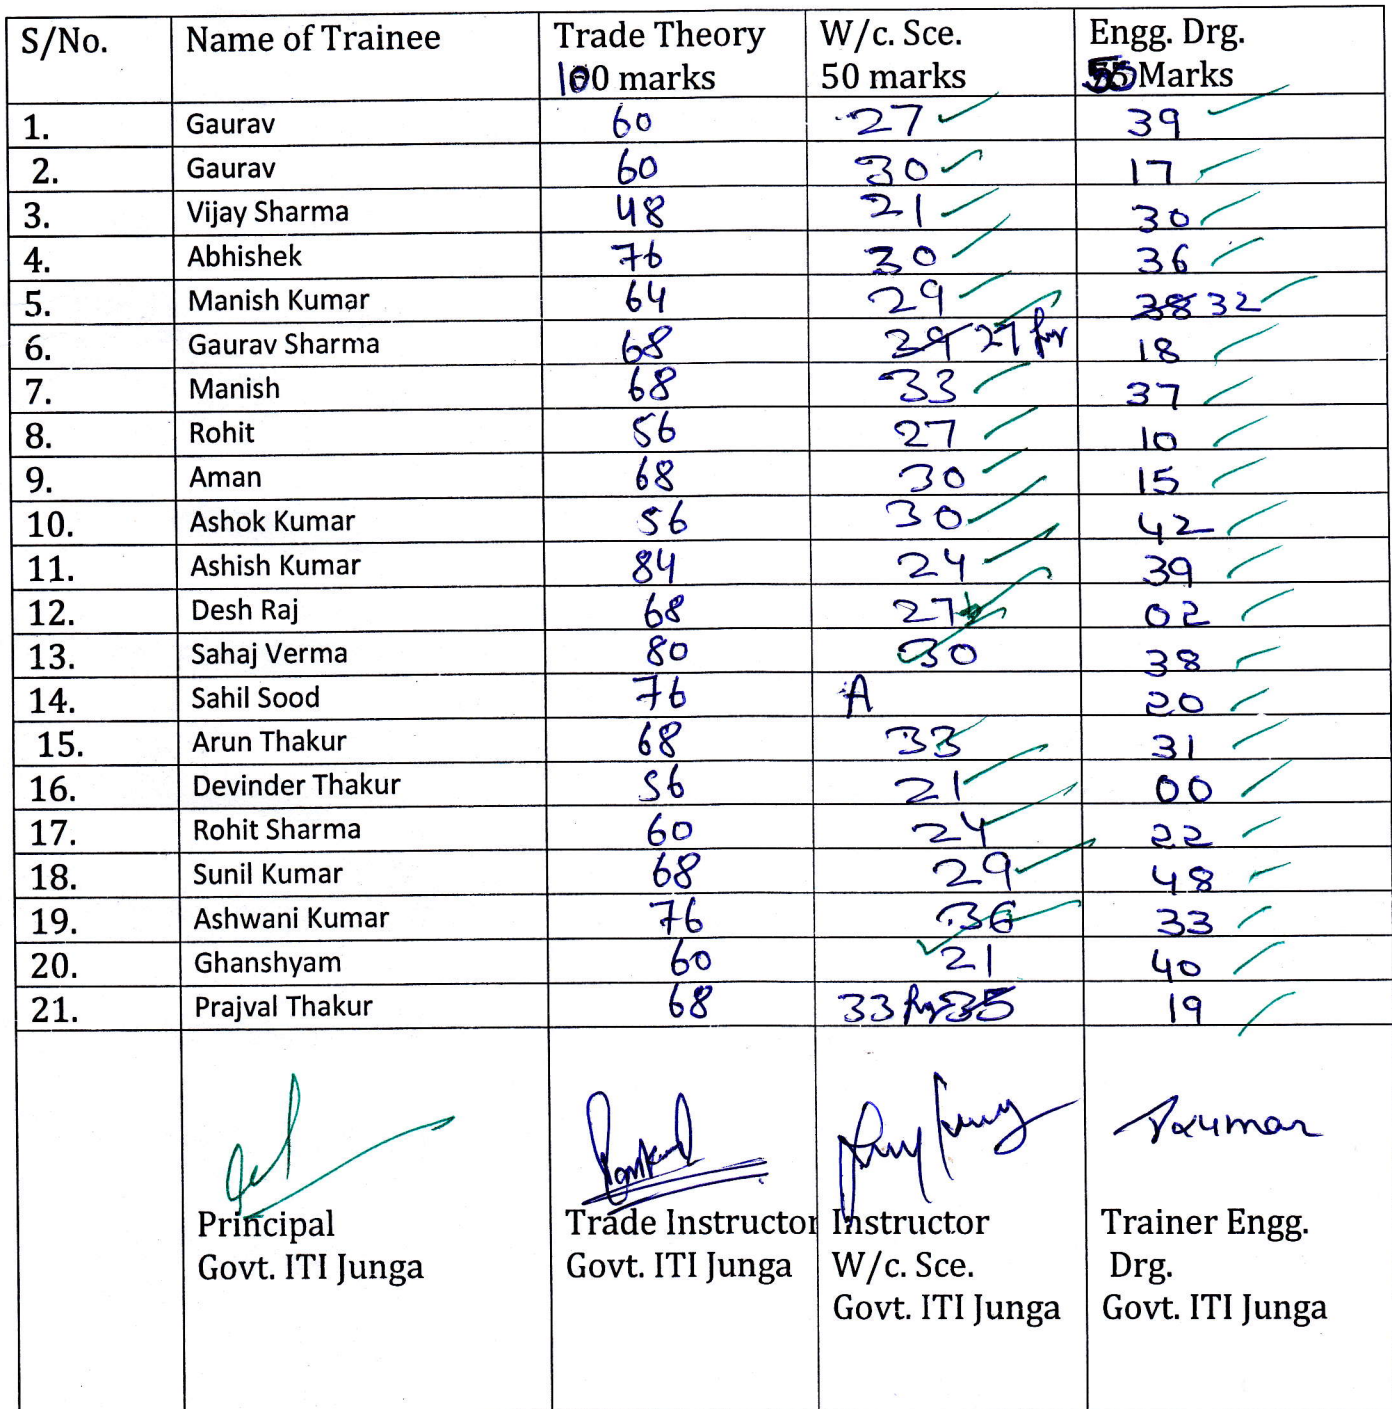 S/No. Name of Trainee Trade Theory W/c. Sce. Engg. Drg.
100 marks 50 marks 50 Marks
1. Gaurav 60 27 39
2. Gaurav 60 30 17
3. Vijay Sharma 48 21 30
4. Abhishek 76 30 36
5. Manish Kumar 64 29 38 32
6. Gaurav Sharma 68 39 27
18
7. Manish 68 33 37
8. Rohit 56 27 10
9. Aman 68 30 15
10. Ashok Kumar 56 30 42
11. Ashish Kumar 84 24 39
12. Desh Raj 68 27 02
13. Sahaj Verma 80 30 38
14. Sahil Sood 76 A 20
15. Arun Thakur 68 33 31
16. Devinder Thakur 56 21 00
17. Rohit Sharma 60 24 22
18. Sunil Kumar 68 29 48
19. Ashwani Kumar 76 36 33
20. Ghanshyam 60 21 40
21. Prajval Thakur 68 33 35 19
Principal Trade Instructor Instructor Trainer Engg.
Govt. ITI Junga Govt. ITI Junga W/c. Sce. Drg.
Govt. ITI Junga Govt. ITI Junga